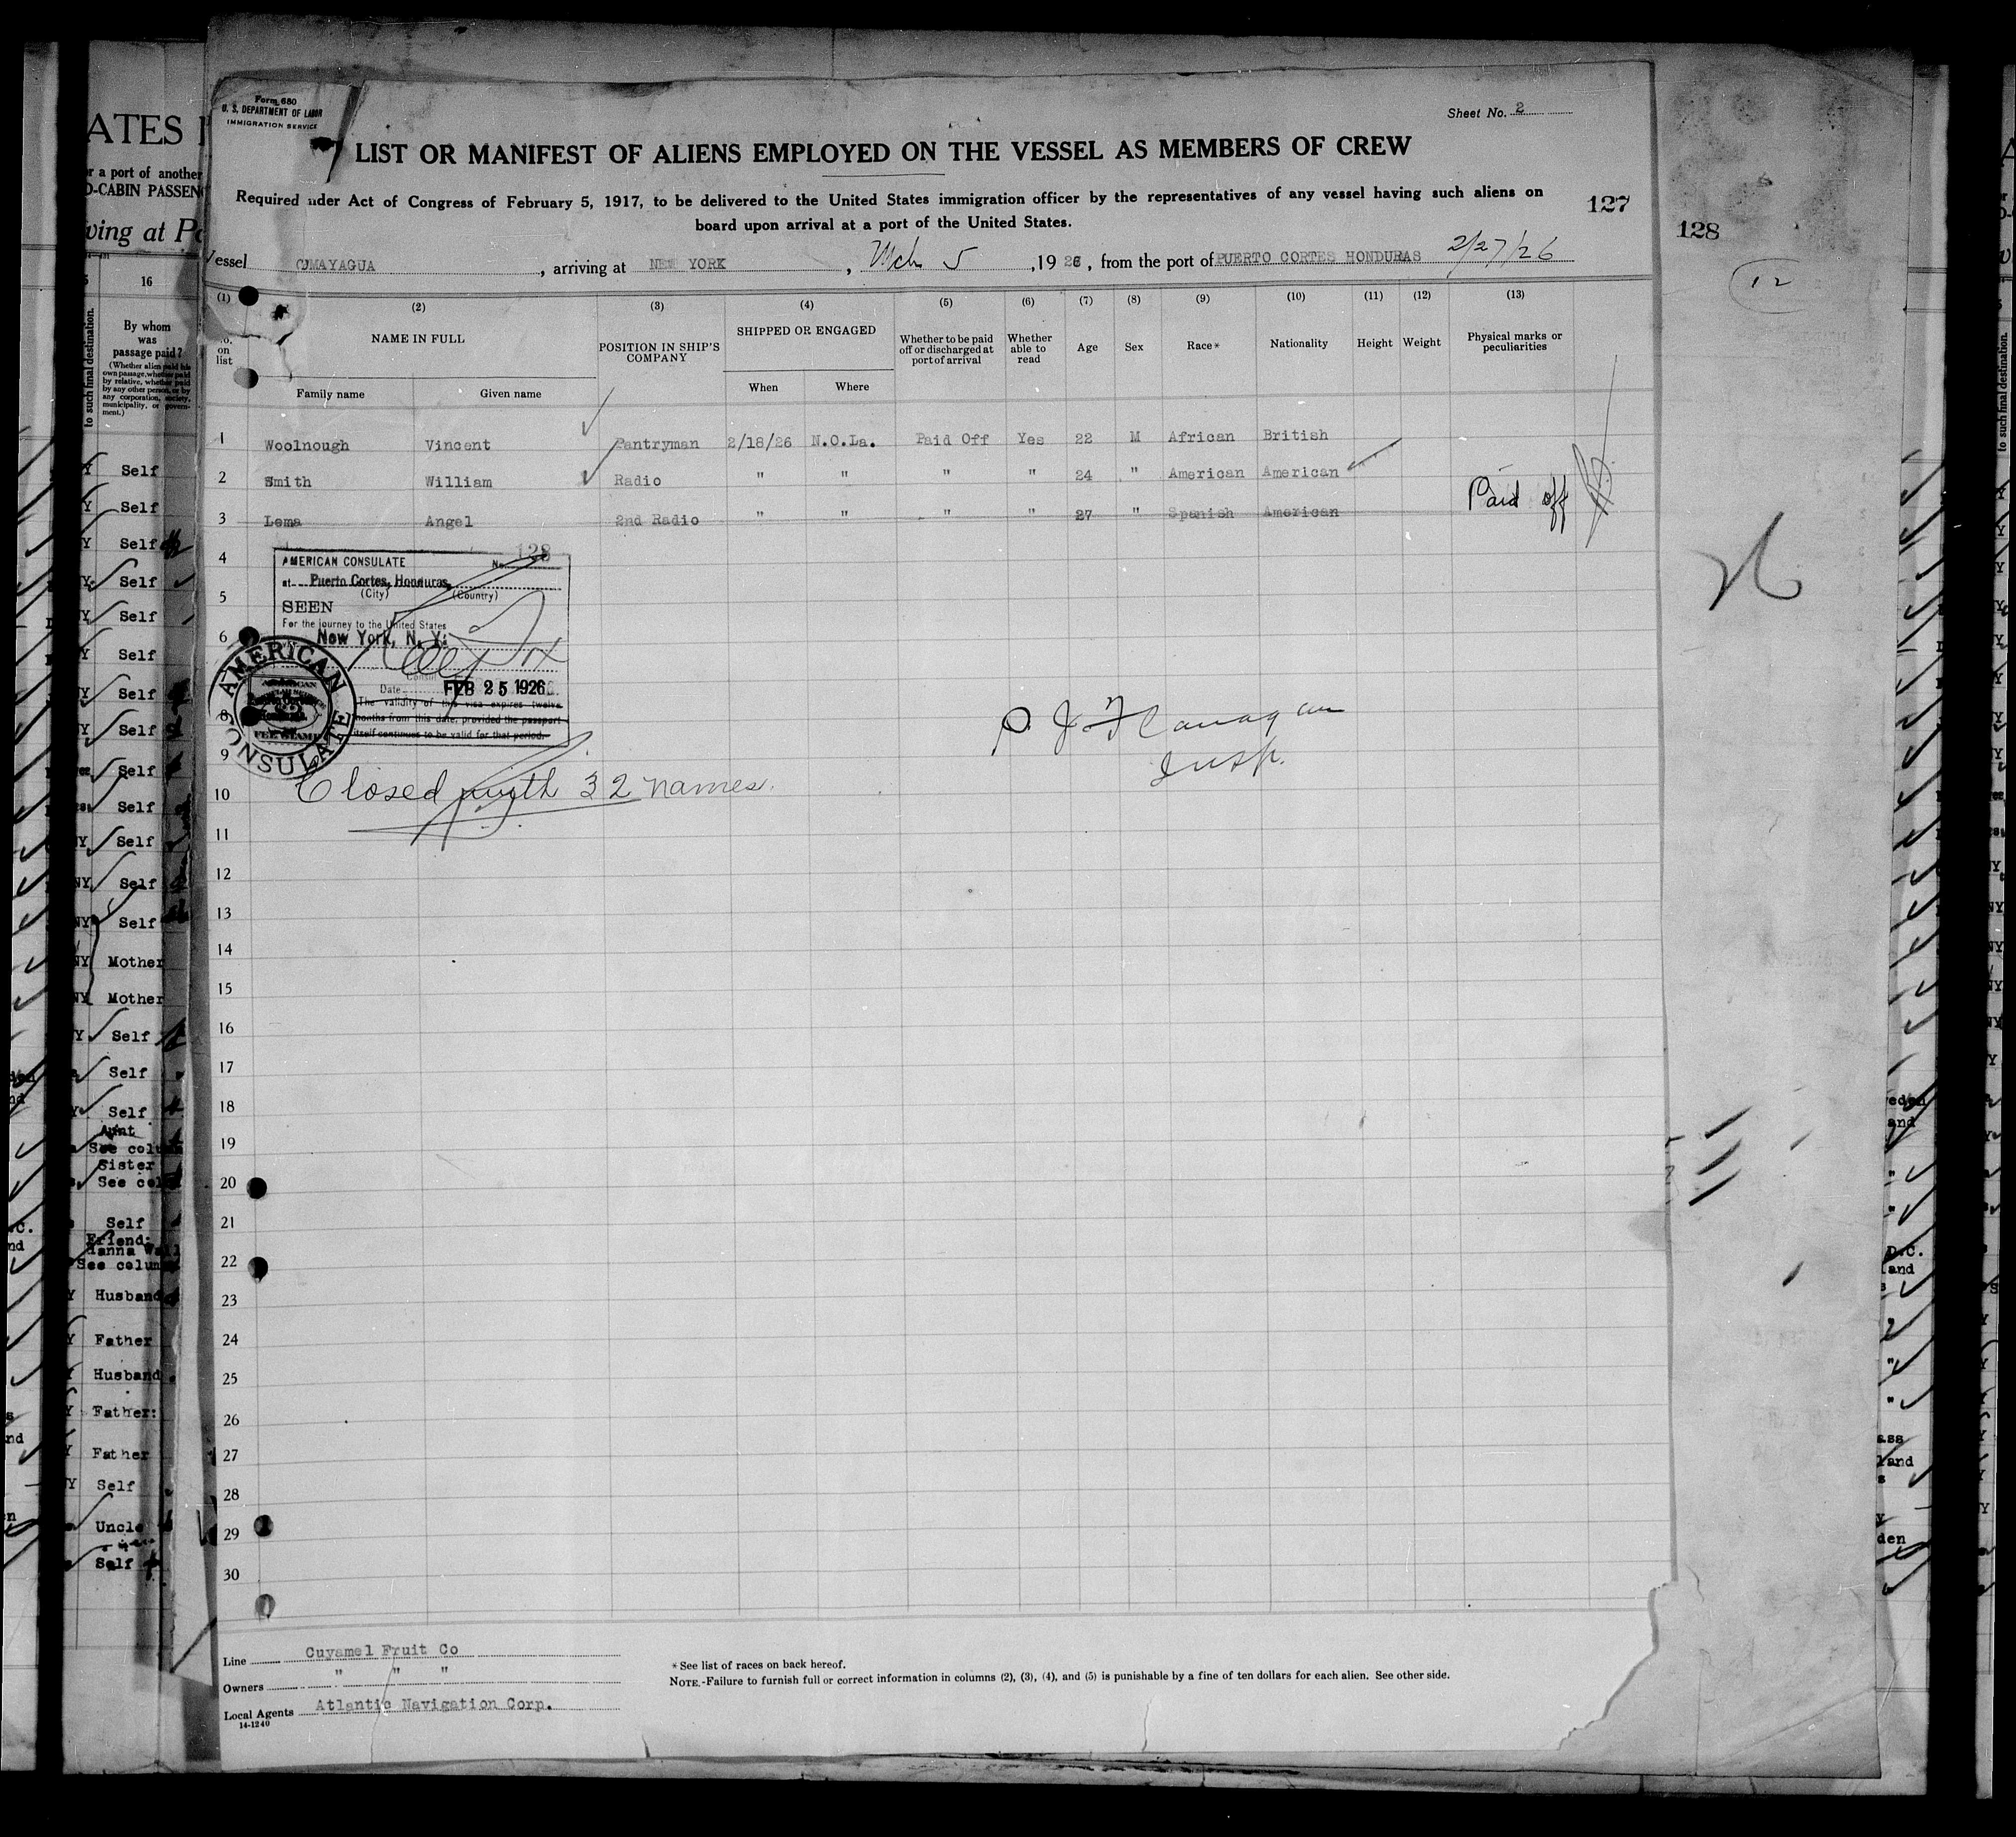 Form 680
U. S. DEPARTMENT OF LABOR
IMMIGRATION SERVICE
Sheet No. 2
LIST OR MANIFEST OF ALIENS EMPLOYED ON THE VESSEL AS MEMBERS OF CREW
Required under Act of Congress of February 5, 1917, to be delivered to the United States immigration officer by the representatives of any vessel having such aliens on
board upon arrival at a port of the United States.
127
128
12
Vessel OMAYAGUA, arriving at NEW YORK, Mch 5, 1926, from the port of PUERTO CORTES HONDURAS 2/27/26
(1) (2) (3) (4) (5) (6) (7) (8) (9) (10) (11) (12) (13)
No. on list
NAME IN FULL
Family name Given name
POSITION IN SHIP'S COMPANY
SHIPPED OR ENGAGED
When Where
Whether to be paid off or discharged at port of arrival
Whether able to read
Age Sex Race* Nationality Height Weight
Physical marks or peculiarities
1 Woolnough Vincent Pantryman 2/18/26 N.O.La. Paid Off Yes 22 M African British
2 Smith William Radio " " " " 24 " American American
3 Lema Angel 2nd Radio " " " " 27 " Spanish American
Paid off
4
5
6
8
9
10
11
12
13
14
15
16
17
18
19
20
21
22
23
24
25
26
27
28
29
30
AMERICAN CONSULATE
No. 128
at Puerto Cortes, Honduras,
(City) (Country)
SEEN
For the journey to the United States
New York, N. Y.
Date FEB 25 1926
The validity of this visa expires twelve
months from this date, provided the passport
itself continues to be valid for that period.
AMERICAN CONSULATE
FEE STAMP
Closed with 32 names.
P J Flanagan
Insp.
Line Cuyamel Fruit Co
Owners " " "
Local Agents Atlantic Navigation Corp.
14-1240
*See list of races on back hereof.
NOTE.-Failure to furnish full or correct information in columns (2), (3), (4), and (5) is punishable by a fine of ten dollars for each alien. See other side.
ATES
r a port of another
D-CABIN PASSEN
ving at Po
16
to such final destination.
By whom
was
passage paid?
(Whether alien paid his
own passage, whether paid
by relative, whether paid
by any other person, or by
any corporation, society,
municipality, or govern-
ment.)
Self
Self
Self
Self
Self
Self
Self
Self
Self
Self
Self
Self
Self
Mother
Mother
Self
Self
Self
Aunt
See colum
Sister
See col
Self
Friend:
Hanna
See colum
Husband
Father
Husband
Father:
Father
Self
Uncle
Self